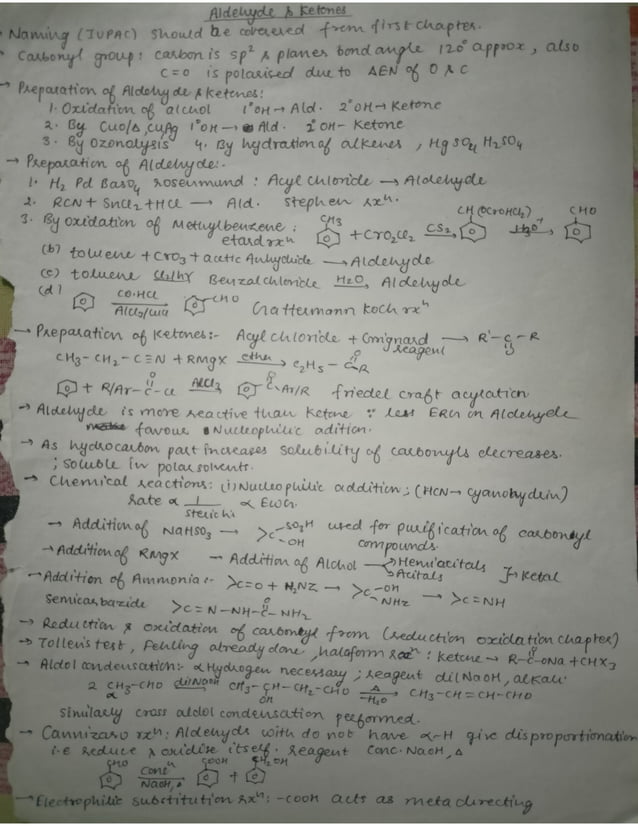 Aldehyde & Ketones
Naming (IUPAC) should be covered from first chapter.
Carbonyl group: carbon is sp² & planer bond angle 120° approx, also
C=O is polarised due to ΔEN of O & C
→ Preparation of Aldehyde & ketones:
1. Oxidation of alcohol 1°OH → Ald. 2°OH → Ketone
2. By CuO/Δ, Cu,Ag 1°OH → Ald. 2°OH - Ketone
3. By Ozonolysis 4. By hydration of alkenes, HgSO4, H2SO4
→ Preparation of Aldehyde:-
1. H2 Pd BaSO4 rosenmund : Acyl chloride → Aldehyde
2. RCN + SnCl2 + HCl → Ald. stephen rxn.
3. By oxidation of Methylbenzene : CH3 + CrO2Cl2 CS2 CH(OCrOHCl2) H3O+ CHO
etard rxn
(b) toluene + CrO3 + acetic Anhydride → Aldehyde
(c) toluene Cl2/hγ Benzal chloride H2O Aldehyde
(d) CO·HCl AlCl3/CuCl CHO Gattermann Koch rxn
→ Preparation of Ketones:- Acyl chloride + Grignard reagent → R'-C-R O
CH3-CH2-C≡N + RMgX ether C2H5-C R O
+ R/Ar-C-Cl O AlCl3 C O Ar/R friedel craft acylation
→ Aldehyde is more reactive than Ketone ∵ less ERG in Aldehyde
favour Nucleophilic adition.
→ As hydrocarbon part increases solubility of carbonyls decreases.
; soluble in polar solvents.
→ Chemical reactions: (i) Nucleophilic addition; (HCN → cyanohydrin)
rate ∝ 1/steric hi ∝ EWG.
→ Addition of NaHSO3 → >C-SO3H OH used for purification of carbonyl
compounds.
→ Addition of RMgX → Addition of Alchol → Hemiacitals Acitals } Ketal
→ Addition of Ammonia:- >C=O + H2NZ → >C-OH NHZ → >C=NH
Semicarbazide >C=N-NH-C-NH2 O
→ Reduction & oxidation of carbonyl from (reduction oxidation chapter)
→ Tollen's test, Fehling already done, haloform rxn : Ketone → R-C-ONa O + CHX3
→ Aldol condensation:- αHydrogen necessary ; reagent dil NaOH, alkali
2 CH3-CHO α dil NaOH CH3-CH-CH2-CHO OH Δ -H2O CH3-CH=CH-CHO
Similarly cross aldol condensation performed.
→ Cannizaro rxn: Aldehyds with do not have α-H give disproportionation
i.e reduce & oxidise itself. reagent Conc. NaOH, Δ
CHO Concn NaOH, Δ COOH + CH2OH
→ Electrophilic substitution rxn: -COOH acts as meta directing